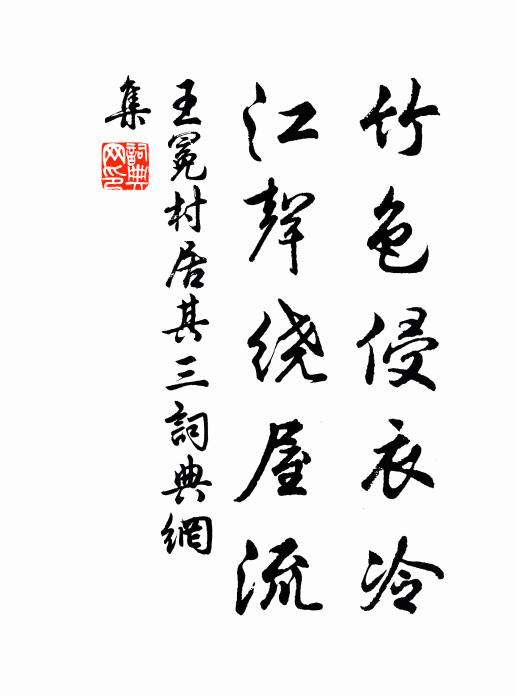 竹色侵衣冷
江聲绕屋流
王冕村居其三詞典網
集
詞典
网印